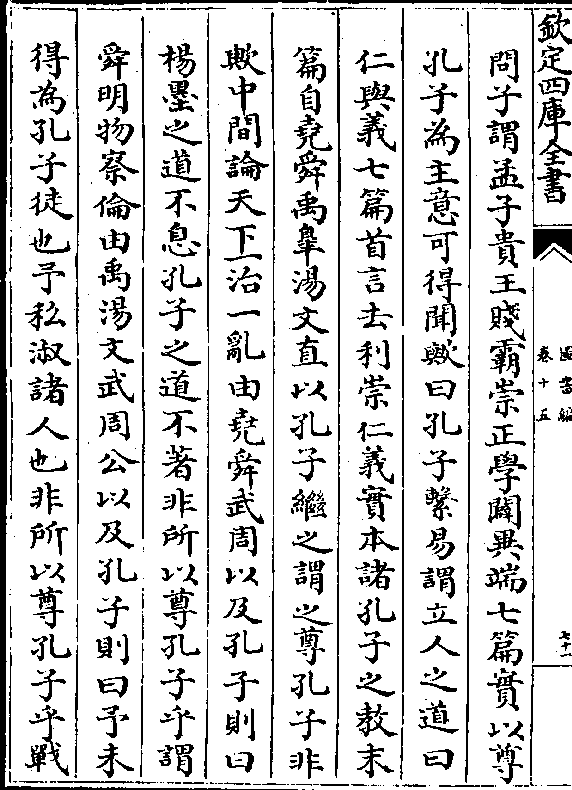 欽定四庫全書
圖書編
卷十五
七十一
問子謂孟子貴王賤霸崇正學闢異端七篇實以尊
孔子為主意可得聞歟曰孔子繫易謂立人之道曰
仁與義七篇首言去利崇仁義實本諸孔子之教末
篇自堯舜禹臯湯文直以孔子繼之謂之尊孔子非
歟中間論天下一治一亂由堯舜武周以及孔子則曰
楊墨之道不息孔子之道不著非所以尊孔子乎謂
舜明物察倫由禹湯文武周公以及孔子則曰予未
得為孔子徒也予私淑諸人也非所以尊孔子乎戰